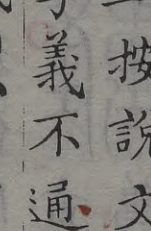 按說文
義不通